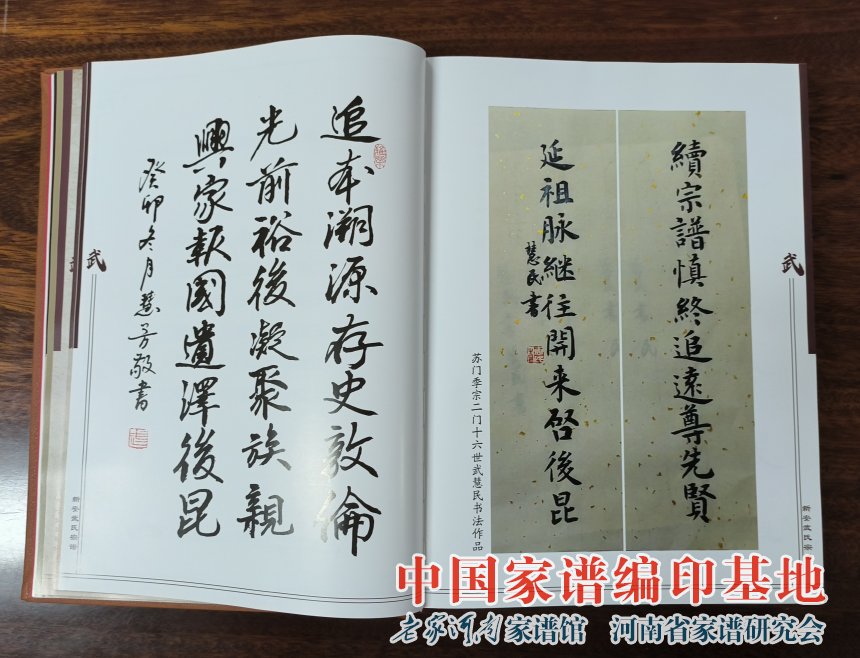 續宗譜慎終追遠尊先賢
延祖脉継往開来啓後昆
慧民書
苏门季宗二门十六世武慧民书法作品
武
新安武氏宗
追本溯源存史敦倫
光前裕後凝聚族親
興家報國遺澤後昆
癸卯冬月慧芳敬書
武
新安武氏宗谱
中国家谱编印基地
老家河南家谱馆 河南省家谱研究会